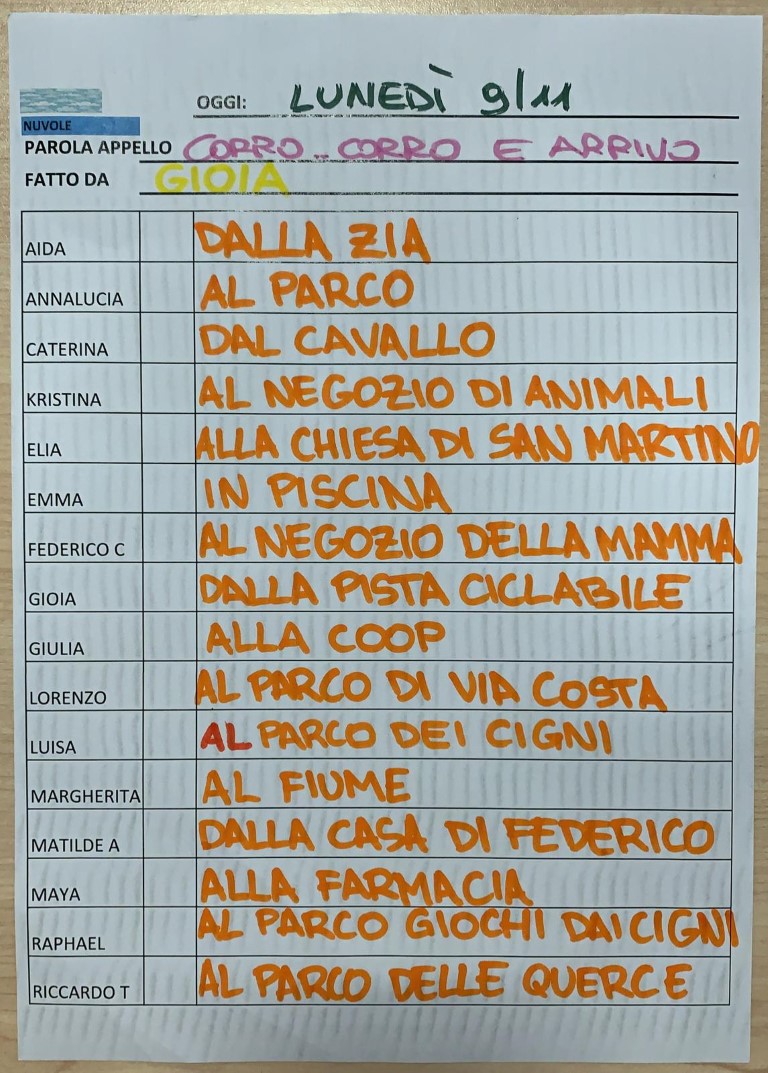 OGGI: LUNEDÌ 9/11
NUVOLE
PAROLA APPELLO CORRO.. CORRO E ARRIVO
FATTO DA GIOIA
AIDA DALLA ZIA
ANNALUCIA AL PARCO
CATERINA DAL CAVALLO
KRISTINA AL NEGOZIO DI ANIMALI
ELIA ALLA CHIESA DI SAN MARTINO
EMMA IN PISCINA
FEDERICO C AL NEGOZIO DELLA MAMMA
GIOIA DALLA PISTA CICLABILE
GIULIA ALLA COOP
LORENZO AL PARCO DI VIA COSTA
LUISA AL PARCO DEI CIGNI
MARGHERITA AL FIUME
MATILDE A DALLA CASA DI FEDERICO
MAYA ALLA FARMACIA
RAPHAEL AL PARCO GIOCHI DAI CIGNI
RICCARDO T AL PARCO DELLE QUERCE